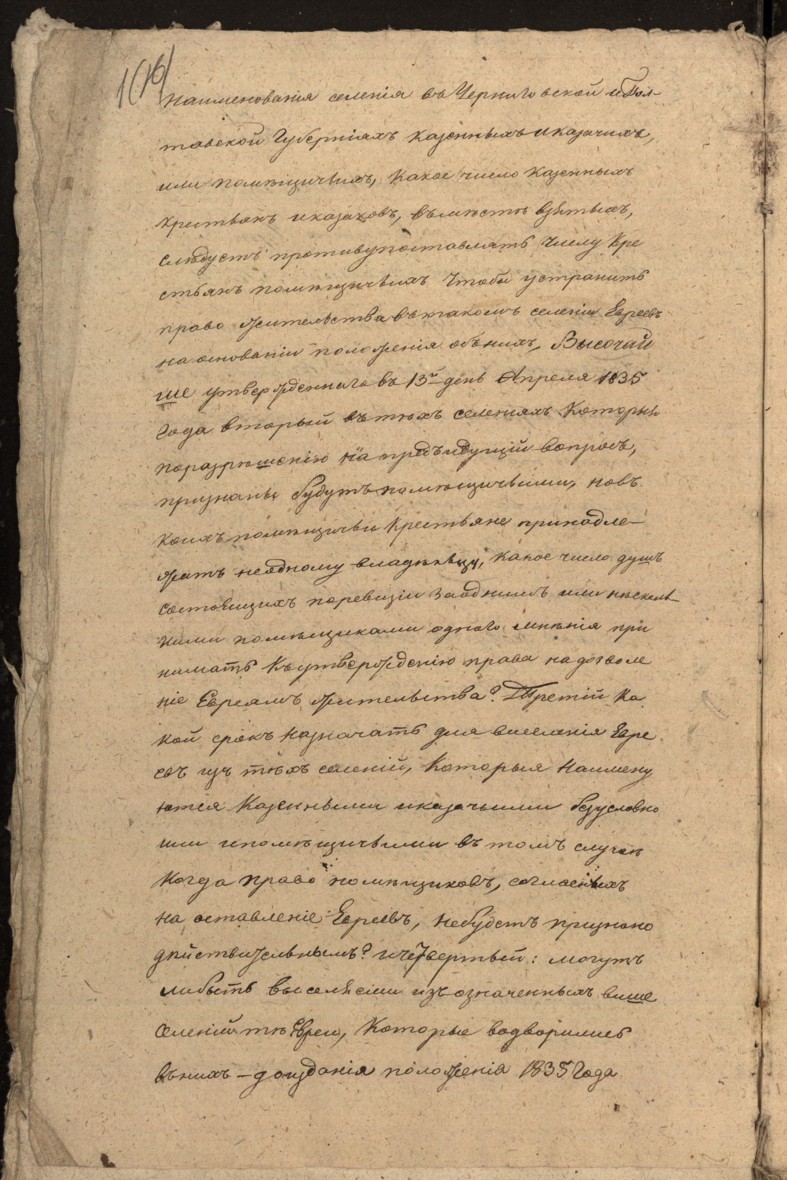 1(16)
наименованія селенія въ Черниговской и Пол-
тавской Губерніяхъ казенныхъ и казачихъ,
или помѣщичьихъ, какое число казенныхъ
крестьянъ и казаковъ, въмѣстѣ взятыхъ,
слѣдуетъ противупоставлять числу кре
стьянъ помѣщичьихъ чтобы устранить
право жительства въ такомъ селеніи Евреевъ
на основаніи положенія объ нихъ, Высочай
ше утвержденнаго въ 13й день Апрѣля 1835
года вторый въ тѣхъ селеніяхъ которыя
по разрѣшенію на предъидущій вопросъ,
признаны будутъ помѣщичьими, но въ
коихъ помѣщичьи крестьяне принадле-
жатъ не одному владѣльцу, какое число душъ
состоящихъ по ревизіи за однимъ или нѣсколь
кими помѣщиками одного мнѣнія при
нимать къ утвержденію права на дозволе
ніе Евреямъ жительства? Третій ка
кой срокъ назначать для выселенія Евре
евъ изъ тѣхъ селеній, которыя наимену
ются казенными и казачьими безусловно
или и помѣщичьими въ томъ случаѣ
когда право помѣщиковъ, согласныхъ
на оставленіе Евреевъ, небудетъ признано
дѣйствительнымъ? и четвертый: могутъ
ли быть выселяемы изъ означенныхъ выше
селеній тѣ Евреи, которые водворились
въ нихъ – до изданія положенія 1835 года